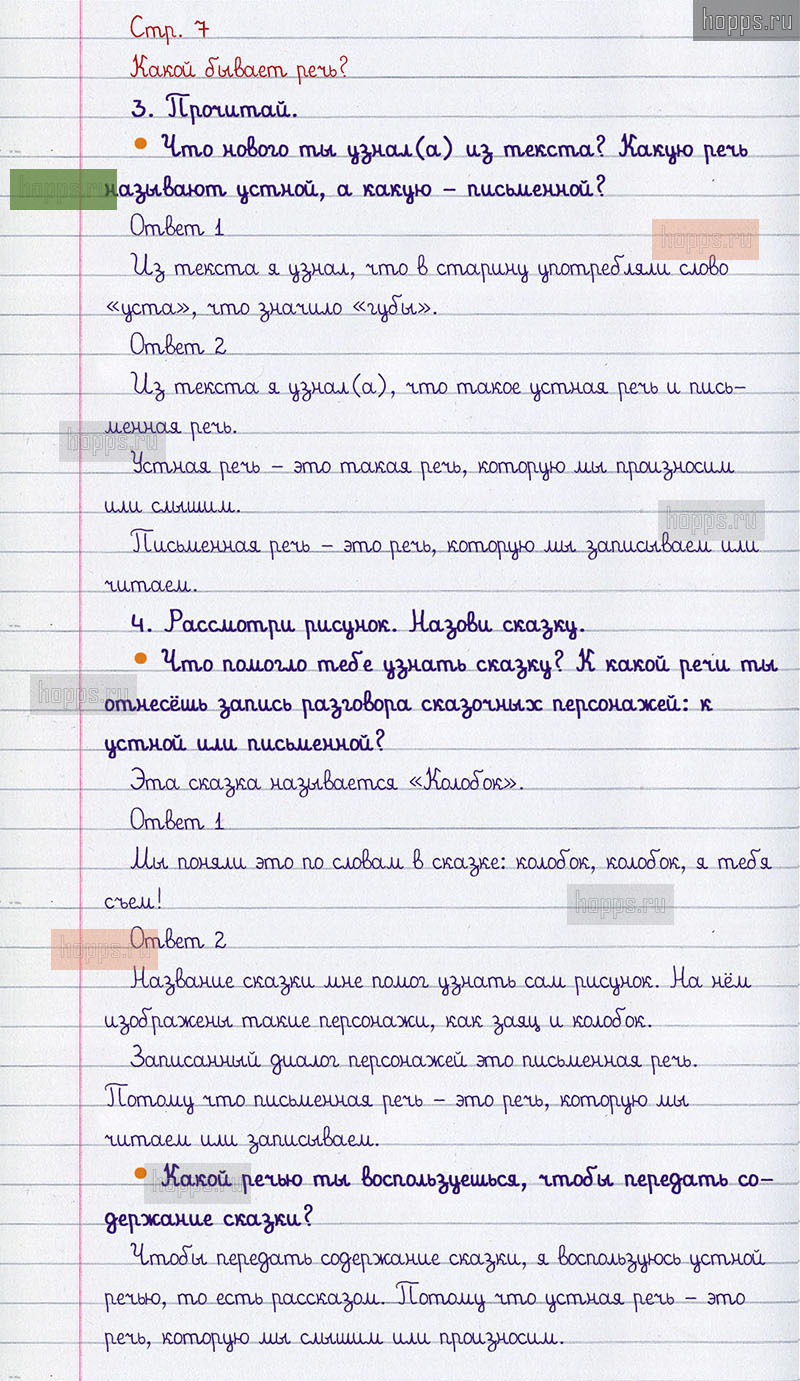 hopps.ru
Стр. 7
Какой бывает речь?
3. Прочитай.
• Что нового ты узнал(а) из текста? Какую речь
называют устной, а какую – письменной?
hopps.ru
Ответ 1
hopps.ru
Из текста я узнал, что в старину употребляли слово
«уста», что значило «губы».
Ответ 2
Из текста я узнал(а), что такое устная речь и пись-
менная речь.
hopps.ru
Устная речь – это такая речь, которую мы произносим
или слышим.
hopps.ru
Письменная речь – это речь, которую мы записываем или
читаем.
4. Рассмотри рисунок. Назови сказку.
• Что помогло тебе узнать сказку? К какой речи ты
hopps.ru
отнесёшь запись разговора сказочных персонажей: к
устной или письменной?
Эта сказка называется «Колобок».
Ответ 1
Мы поняли это по словам в сказке: колобок, колобок, я тебя
съем!
hopps.ru
Ответ 2
hopps.ru
Название сказки мне помог узнать сам рисунок. На нём
изображены такие персонажи, как заяц и колобок.
Записанный диалог персонажей это письменная речь.
Потому что письменная речь – это речь, которую мы
читаем или записываем.
• Какой речью ты воспользуешься, чтобы передать со-
hopps.ru
держание сказки?
Чтобы передать содержание сказки, я воспользуюсь устной
речью, то есть рассказом. Потому что устная речь – это
речь, которую мы слышим или произносим.